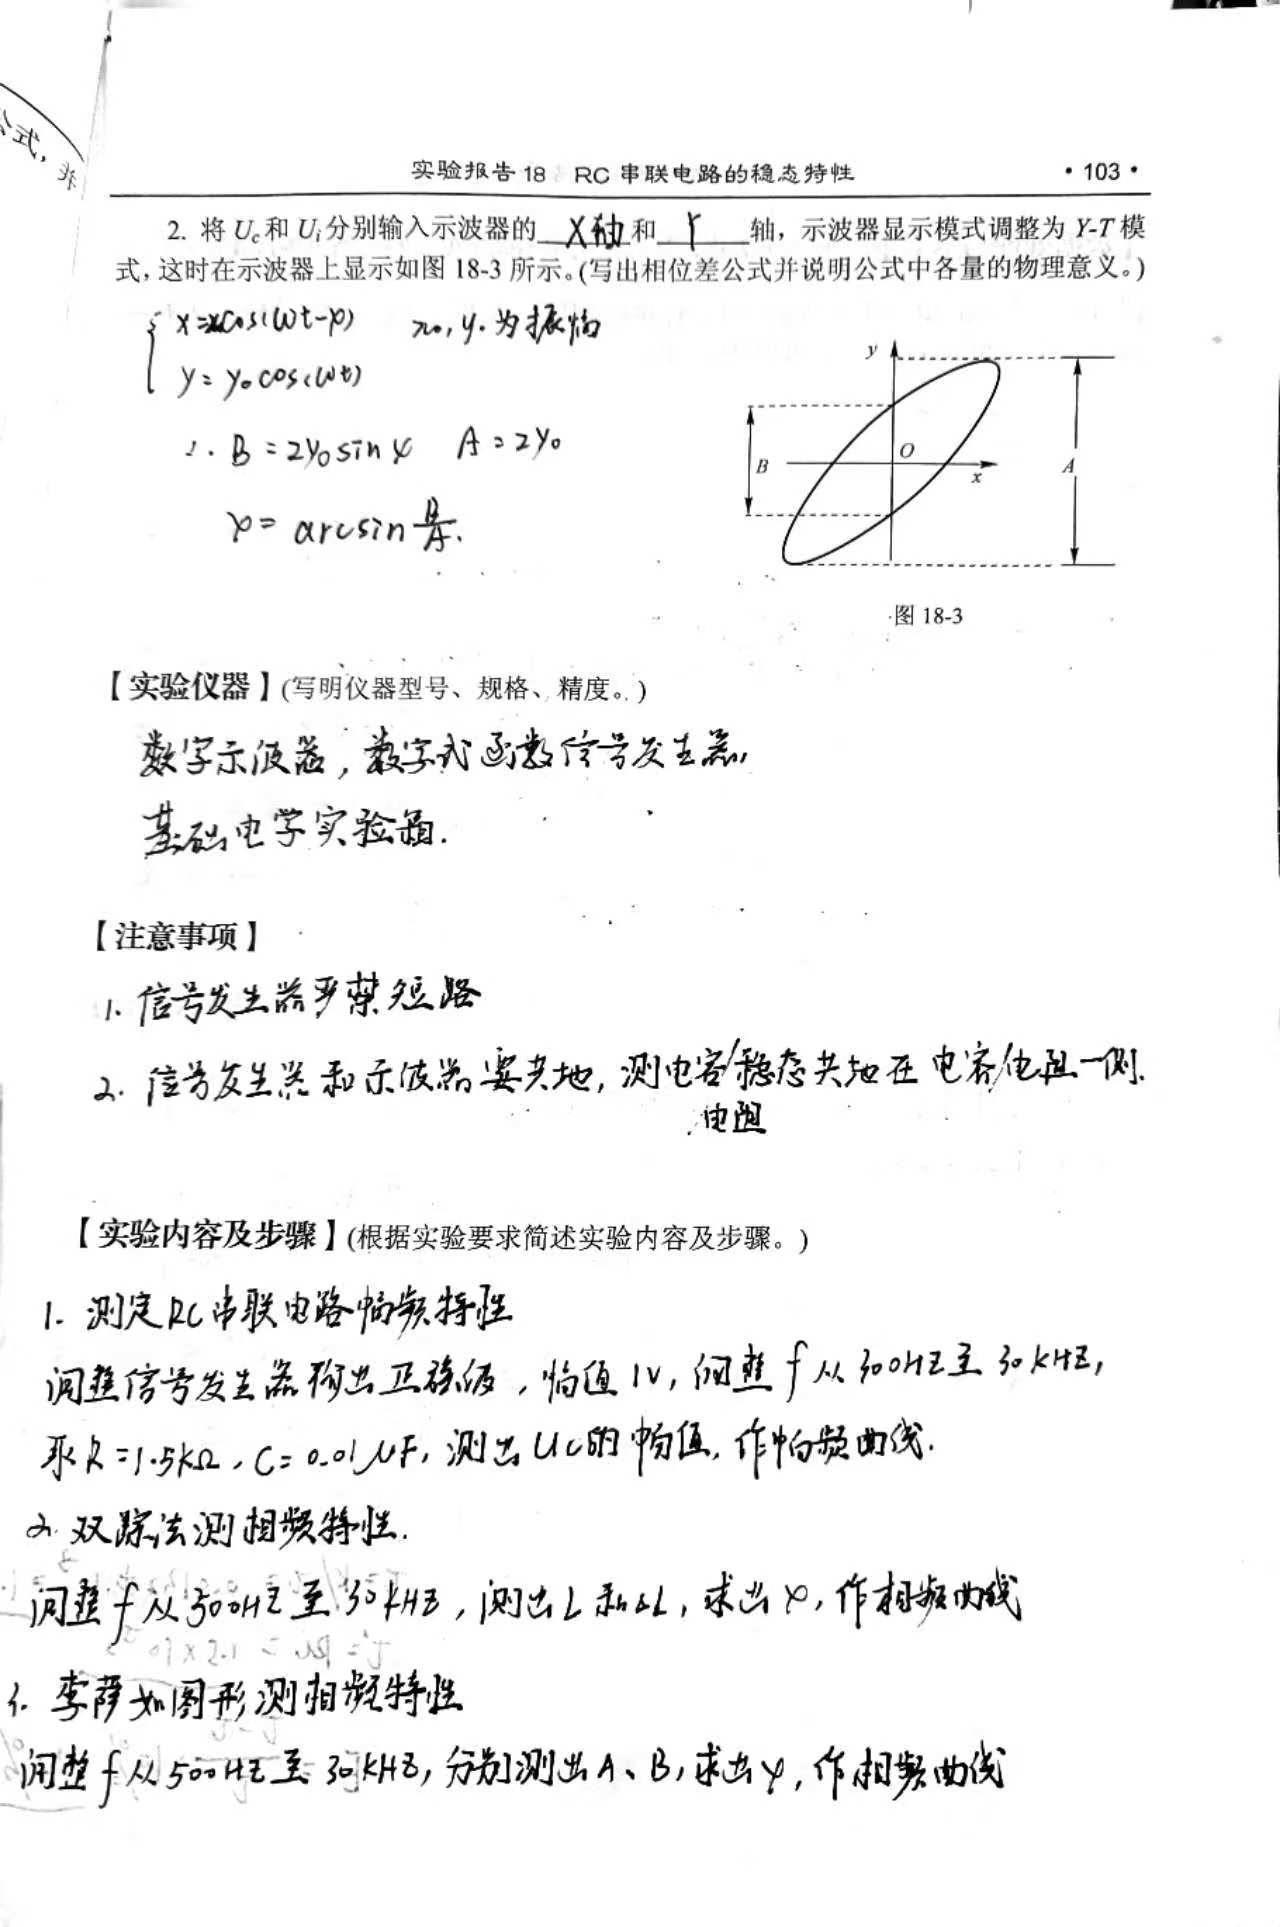 实验报告 18 RC 串联电路的稳态特性 · 103 ·
2. 将 Uc和 Ui分别输入示波器的 X轴 和 Y 轴，示波器显示模式调整为 Y-T 模
式，这时在示波器上显示如图 18-3 所示。(写出相位差公式并说明公式中各量的物理意义。)
x=x₀cos(ωt-φ) x₀, y₀为振幅
y= y₀cos(ωt)
∴ B = 2y₀sinφ A = 2y₀
φ= arcsin B/A.
y
B
O
x
A
图 18-3
【实验仪器】(写明仪器型号、规格、精度。)
数字示波器，数字式函数信号发生器,
基础电学实验箱.
【注意事项】
1. 信号发生器严禁短路
2. 信号发生器和示波器要共地, 测电容/稳态共地在电容/电阻一侧.
电阻
【实验内容及步骤】(根据实验要求简述实验内容及步骤。)
1. 测定RC串联电路幅频特性
调整信号发生器输出正弦波，幅值1V, 调整f从300HZ至30KHZ,
取R=1.5kΩ, C=0.01μF, 测出Uc的幅值, 作幅频曲线.
2. 双踪法测相频特性.
调整f从300HZ至30KHZ, 测出L和ΔL, 求出φ, 作相频曲线
3. 李萨如图形测相频特性
调整f从500HZ至30KHZ, 分别测出A、B, 求出φ, 作相频曲线